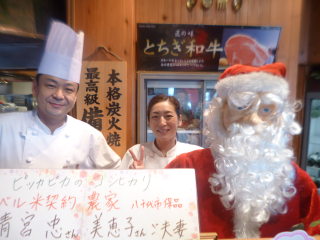 匠の味
とちぎ和牛
本格炭火焼
最高級備
ピッカピカのコシヒカリ
ベル米契約農家 八千代市優品
清宮 忠さん 美恵子さんご夫妻